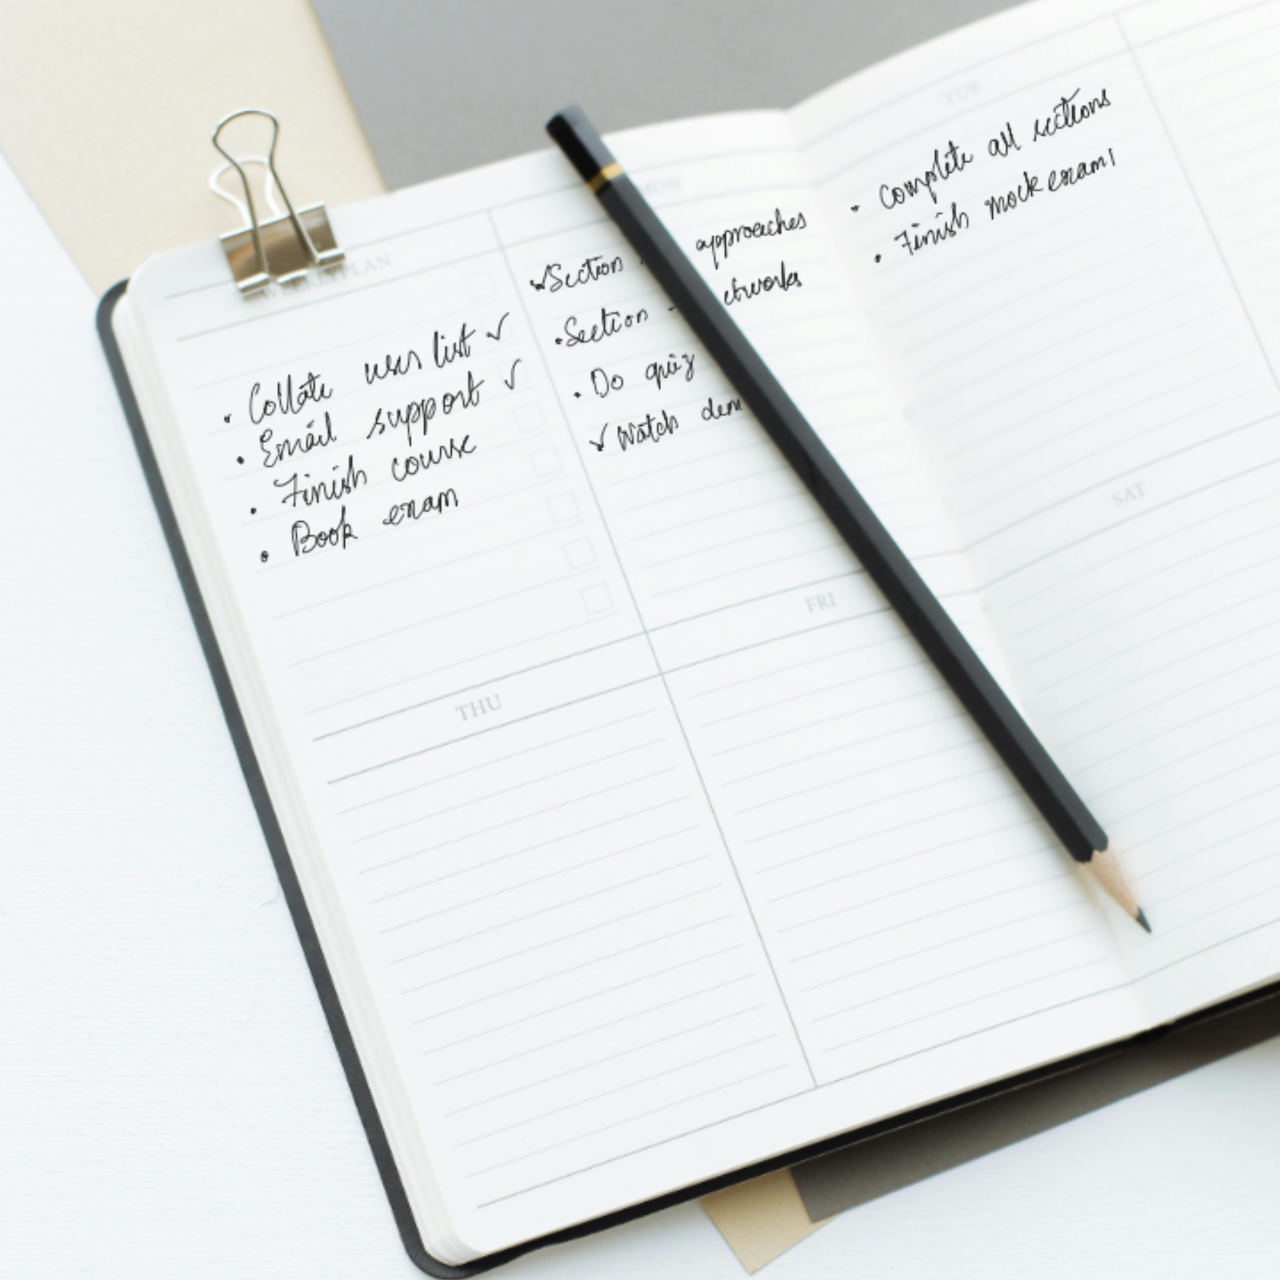 WEEKLY PLAN
• Collate user list ✓
• Email support ✓
• Finish course
• Book exam
MON
✓ Section approaches
• Section -
• Do quiz
✓ Watch
TUE
• Complete all sections
• Finish mock exam 1
THU
FRI
SAT